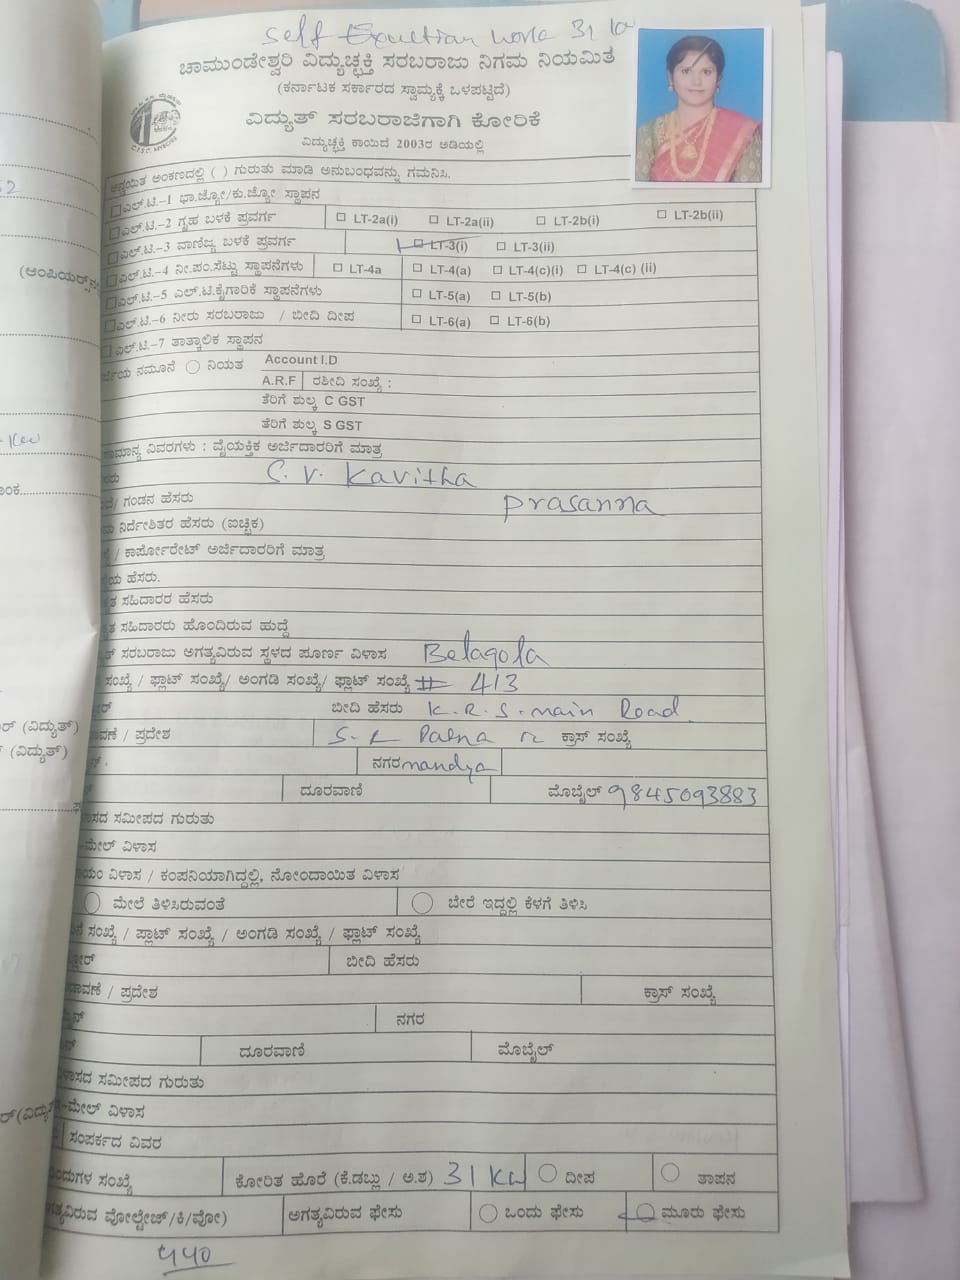 Self
ಚಾಮುಂಡೇಶ್ವರಿ ವಿದ್ಯುಚ್ಛಕ್ತಿ ಸರಬರಾಜು ನಿಗಮ ನಿಯಮಿತ
(ಕರ್ನಾಟಕ ಸರ್ಕಾರದ ಸ್ವಾಮ್ಯಕ್ಕೆ ಒಳಪಟ್ಟಿದೆ)
ವಿದ್ಯುತ್ ಸರಬರಾಜಿಗಾಗಿ ಕೋರಿಕೆ
ವಿದ್ಯುಚ್ಛಕ್ತಿ ಕಾಯಿದೆ 2003ರ ಅಡಿಯಲ್ಲಿ
ಅನ್ವಯಿತ ಅಂಕಣದಲ್ಲಿ ( ) ಗುರುತು ಮಾಡಿ ಅನುಬಂಧವನ್ನು ಗಮನಿಸಿ.
ಎಲ್.ಟಿ.-1 ಭಾ.ಜ್ಯೋ/ಕು.ಜ್ಯೋ ಸ್ಥಾಪನ
ಎಲ್.ಟಿ.-2 ಗೃಹ ಬಳಕೆ ಪ್ರವರ್ಗ LT-2a(i) LT-2a(ii) LT-2b(i) LT-2b(ii)
ಎಲ್.ಟಿ.-3 ವಾಣಿಜ್ಯ ಬಳಕೆ ಪ್ರವರ್ಗ LT-3(i) LT-3(ii)
ಎಲ್.ಟಿ.-4 ನೀ.ಪಂ.ಸೆಟ್ಟು ಸ್ಥಾಪನೆಗಳು LT-4a LT-4(a) LT-4(c)(i) LT-4(c) (ii)
ಎಲ್.ಟಿ.-5 ಎಲ್.ಟಿ.ಕೈಗಾರಿಕೆ ಸ್ಥಾಪನೆಗಳು LT-5(a) LT-5(b)
ಎಲ್.ಟಿ.-6 ನೀರು ಸರಬರಾಜು / ಬೀದಿ ದೀಪ LT-6(a) LT-6(b)
ಎಲ್.ಟಿ.-7 ತಾತ್ಕಾಲಿಕ ಸ್ಥಾಪನ
ನಮೂನೆ ನಿಯತ Account I.D
A.R.F ರಶೀದಿ ಸಂಖ್ಯೆ :
ತೆರಿಗೆ ಶುಲ್ಕ C GST
ತೆರಿಗೆ ಶುಲ್ಕ S GST
ವಿವರಗಳು : ವೈಯಕ್ತಿಕ ಅರ್ಜಿದಾರರಿಗೆ ಮಾತ್ರ
S. V. Kavitha
/ ಗಂಡನ ಹೆಸರು Prasanna
ನಿರ್ದೇಶಿತರ ಹೆಸರು (ಐಚ್ಛಿಕ)
/ ಕಾರ್ಪೋರೇಟ್ ಅರ್ಜಿದಾರರಿಗೆ ಮಾತ್ರ
ಹೆಸರು.
ಸಹಿದಾರರ ಹೆಸರು
ಸಹಿದಾರರು ಹೊಂದಿರುವ ಹುದ್ದೆ
ಸರಬರಾಜು ಅಗತ್ಯವಿರುವ ಸ್ಥಳದ ಪೂರ್ಣ ವಿಳಾಸ Belagola
ಸಂಖ್ಯೆ / ಫ್ಲಾಟ್ ಸಂಖ್ಯೆ/ ಅಂಗಡಿ ಸಂಖ್ಯೆ/ ಫ್ಲಾಟ್ ಸಂಖ್ಯೆ # 413
ಬೀದಿ ಹೆಸರು K. R. S. main Road
/ ಪ್ರದೇಶ ಕ್ರಾಸ್ ಸಂಖ್ಯೆ
ನಗರ mandya
ದೂರವಾಣಿ ಮೊಬೈಲ್ 9845093883
ಸಮೀಪದ ಗುರುತು
-ಮೇಲ್ ವಿಳಾಸ
ವಿಳಾಸ / ಕಂಪನಿಯಾಗಿದ್ದಲ್ಲಿ, ನೋಂದಾಯಿತ ವಿಳಾಸ
ಮೇಲೆ ತಿಳಿಸಿರುವಂತೆ ಬೇರೆ ಇದ್ದಲ್ಲಿ ಕೆಳಗೆ ತಿಳಿಸಿ
ಸಂಖ್ಯೆ / ಪ್ಲಾಟ್ ಸಂಖ್ಯೆ / ಅಂಗಡಿ ಸಂಖ್ಯೆ / ಫ್ಲಾಟ್ ಸಂಖ್ಯೆ
ಬೀದಿ ಹೆಸರು
/ ಪ್ರದೇಶ ಕ್ರಾಸ್ ಸಂಖ್ಯೆ
ನಗರ
ದೂರವಾಣಿ ಮೊಬೈಲ್
ಸಮೀಪದ ಗುರುತು
-ಮೇಲ್ ವಿಳಾಸ
ಸಂಪರ್ಕದ ವಿವರ
ಸಂಖ್ಯೆ ಕೋರಿತ ಹೊರೆ (ಕೆ.ಡಬ್ಲು / ಅ.ಶ) 31 KW ದೀಪ ತಾಪನ
ವೋಲ್ಟೇಜ್/ಕಿ/ವೋ) ಅಗತ್ಯವಿರುವ ಫೇಸು ಒಂದು ಫೇಸು ಮೂರು ಫೇಸು
440